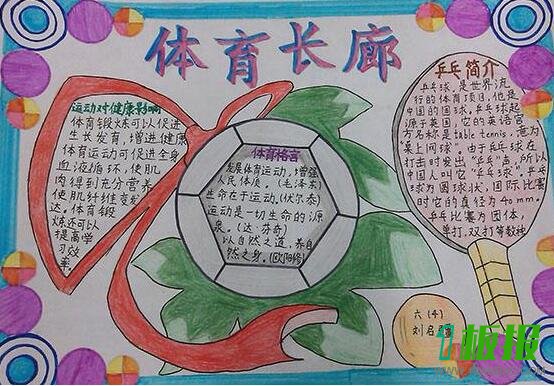 体育长廊
运动对健康影响
体育锻炼可以促进
生长发育，增进健康
体育运动可促进全身
血液循环，使肌
肉得到充分营养
使肌纤维变发
达。体育锻
炼还可以
提高学
习效
率。
体育格言
发展体育运动，增强
人民体质。（毛泽东）
生命在于运动。（伏尔泰）
运动是一切生命的源
泉。（达·芬奇）
以自然之道，养自
然之身。（欧阳修）
乒乓简介
乒乓球，是世界流
行的体育项目，他是
中国的国球。乒乓球起
源于英国，它的英语官
方名称是table tennis，意为
“桌上网球”。由于乒乓球在
打击时发出“乒乓”声，所以
中国人叫它“乒乓球”。乒乓
球为圆球状，国际比赛
时它的直径为40mm。
乒乓比赛为团体，
单打，双打等数种
六（4）
刘启
板报